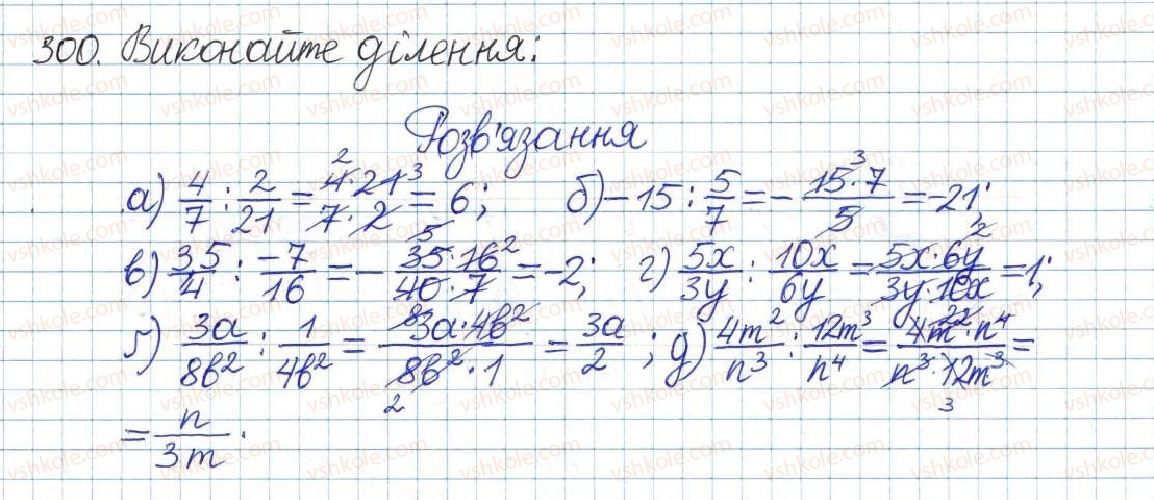 300. Виконайте ділення:
Розв'язання
а) 4/7 : 2/21 = 4·21/7·2 = 6; б) -15 : 5/7 = - 15·7/5 = -21;
в) 35/4 : -7/16 = - 35·16/40·7 = -2; г) 5x/3y : 10x/6y = 5x·6y/3y·10x = 1;
ґ) 3a/8b² : 1/4b² = 3a·4b²/8b²·1 = 3a/2; д) 4m²/n³ : 12m³/n⁴ = 4m²·n⁴/n³·12m³ =
= n/3m.
vshkole.com